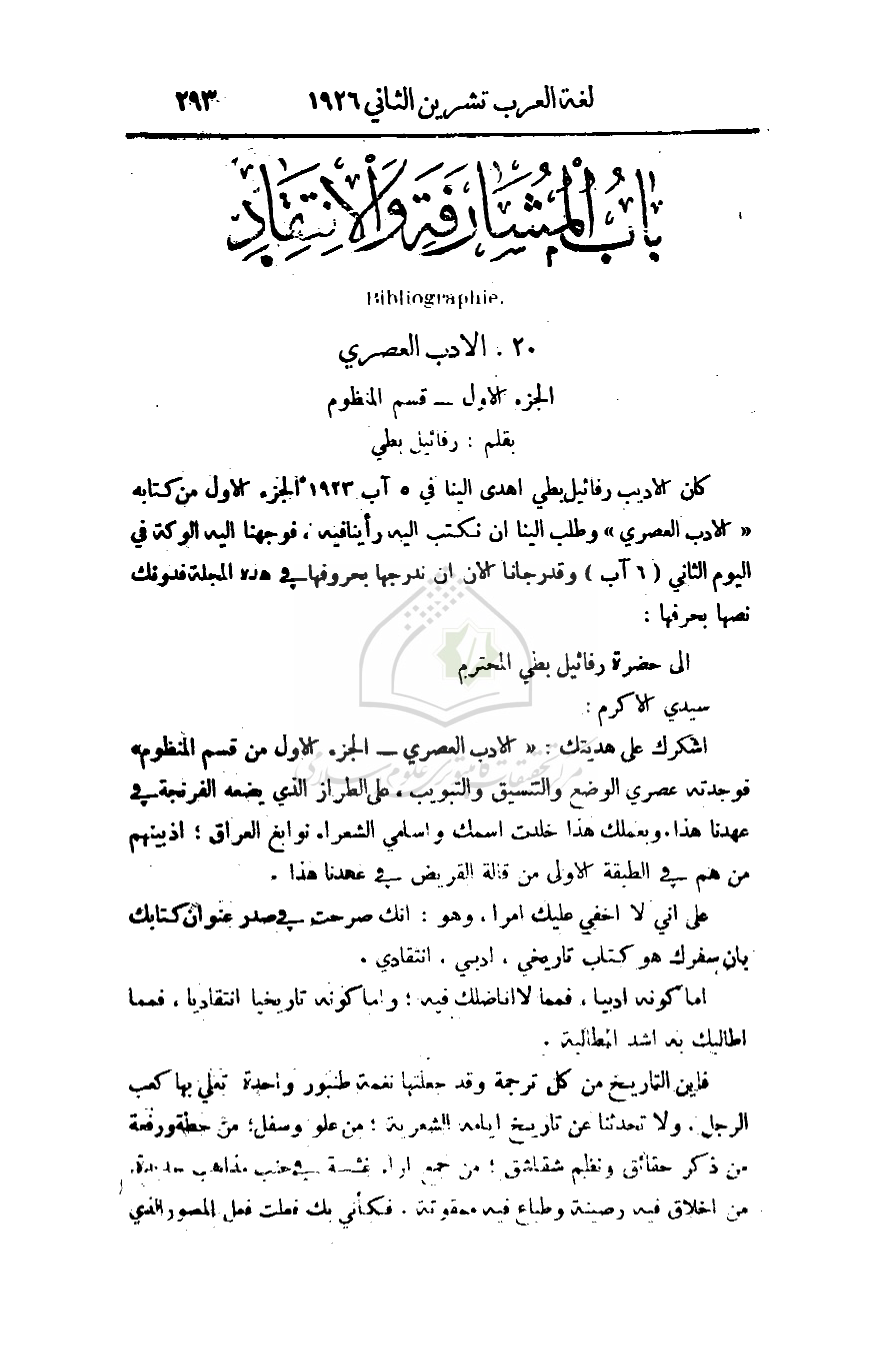 لغة العرب تشرين الثاني ١٩٢٦ ٢٩٣
بَابُ الْمُشَارَفَةِ وَالْإِنْتِقَادِ
Bibliographie.
٢٠ . الادب العصري
الجزء الاول — قسم المنظوم
بقلم : رفائيل بطي
كان الاديب رفائيل بطي اهدى الينا في ٥ آب ١٩٢٣ الجزء الاول من كتابه
« الادب العصري » وطلب الينا ان نكتب اليه رأينا فيه ، فوجهنا اليه الوكة في
اليوم الثاني ( ٦ آب ) وقد رجانا الان ان ندرجها بحروفها في هذه المجلة فدونك
نصها بحرفها :
الى حضرة رفائيل بطي المحترم
سيدي الاكرم :
اشكرك على هديتك : « الادب العصري — الجزء الاول من قسم المنظوم»
فوجدته عصري الوضع والتنسيق والتبويب ، على الطراز الذي يضعه الفرنجة في
عهدنا هذا . وبعملك هذا خلدت اسمك واسامي الشعراء نوابغ العراق ؛ اذ بينهم
من هم في الطبقة الاولى من قالة القريض في عهدنا هذا .
على اني لا اخفي عليك امرا ، وهو : انك صرحت في صدر عنوان كتابك
بان سفرك هو كتاب تاريخي ، ادبي ، انتقادي .
اما كونه ادبيا ، فمما لا اناضلك فيه ؛ واما كونه تاريخيا انتقاديا ، فمما
اطالبك به اشد المطالبة .
فاين التاريخ من كل ترجمة وقد جعلتها نغمة طنبور واحدة تعلي بها كعب
الرجل . ولا تحدثنا عن تاريخ ايامه الشعرية ؛ من علو وسفل ؛ من حطة ورفعة
من ذكر حقائق ونظم شقاشق ؛ من جمع اراء غثة في جنب مذاهب
من اخلاق فيه رصينة وطباع فيه ممقوتة . فكأني بك فعلت فعل المصور الذي